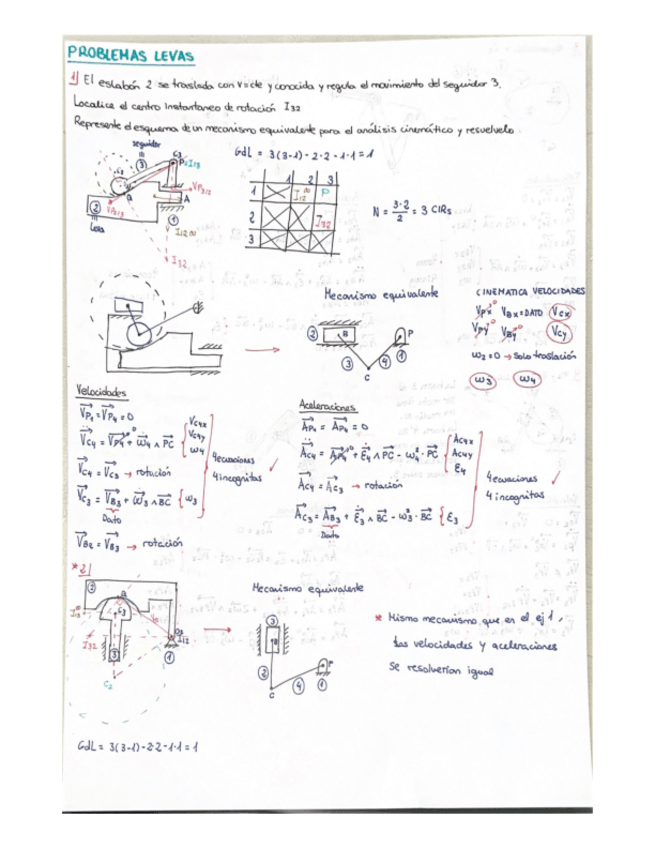 PROBLEMAS LEVAS
1) El eslabón 2 se traslada con v=cte y conocida y regula el movimiento del seguidor 3.
Localice el centro instantaneo de rotación I32
Represente el esquema de un mecanismo equivalente para el análisis cinemático y resuelvelo.
seguidor
GdL = 3(3-1) - 2·2 - 1·1 = 1
N = 3·2/2 = 3 CIRs
1 2 3
1 I12∞ P
2 I32
3
Leva
I32
Mecanismo equivalente
CINEMATICA VELOCIDADES
VBx=DATO VCx
VCy
ω2=0 → solo traslación
ω3 ω4
Velocidades
VP1=VP4=0
VC4 = VP4 + ω4 ∧ PC { VC4x VC4y ω4
VC4 = VC3 → rotación
4 ecuaciones
4 incognitas
VC3 = VB3 + ω3 ∧ BC { ω3
Dato
VB2 = VB3 → rotación
Aceleraciones
AP1 = AP4 = 0
AC4 = AP4 + ε4 ∧ PC - ω4² · PC { AC4x AC4y ε4
AC4 = AC3 → rotación
4 ecuaciones
4 incognitas
AC3 = AB3 + ε3 ∧ BC - ω3² · BC { ε3
Dato
* 2)
Mecanismo equivalente
* Mismo mecanismo que en el ej 1,
Las velocidades y aceleraciones
se resolverían igual
GdL = 3(3-1) - 2·2 - 1·1 = 1